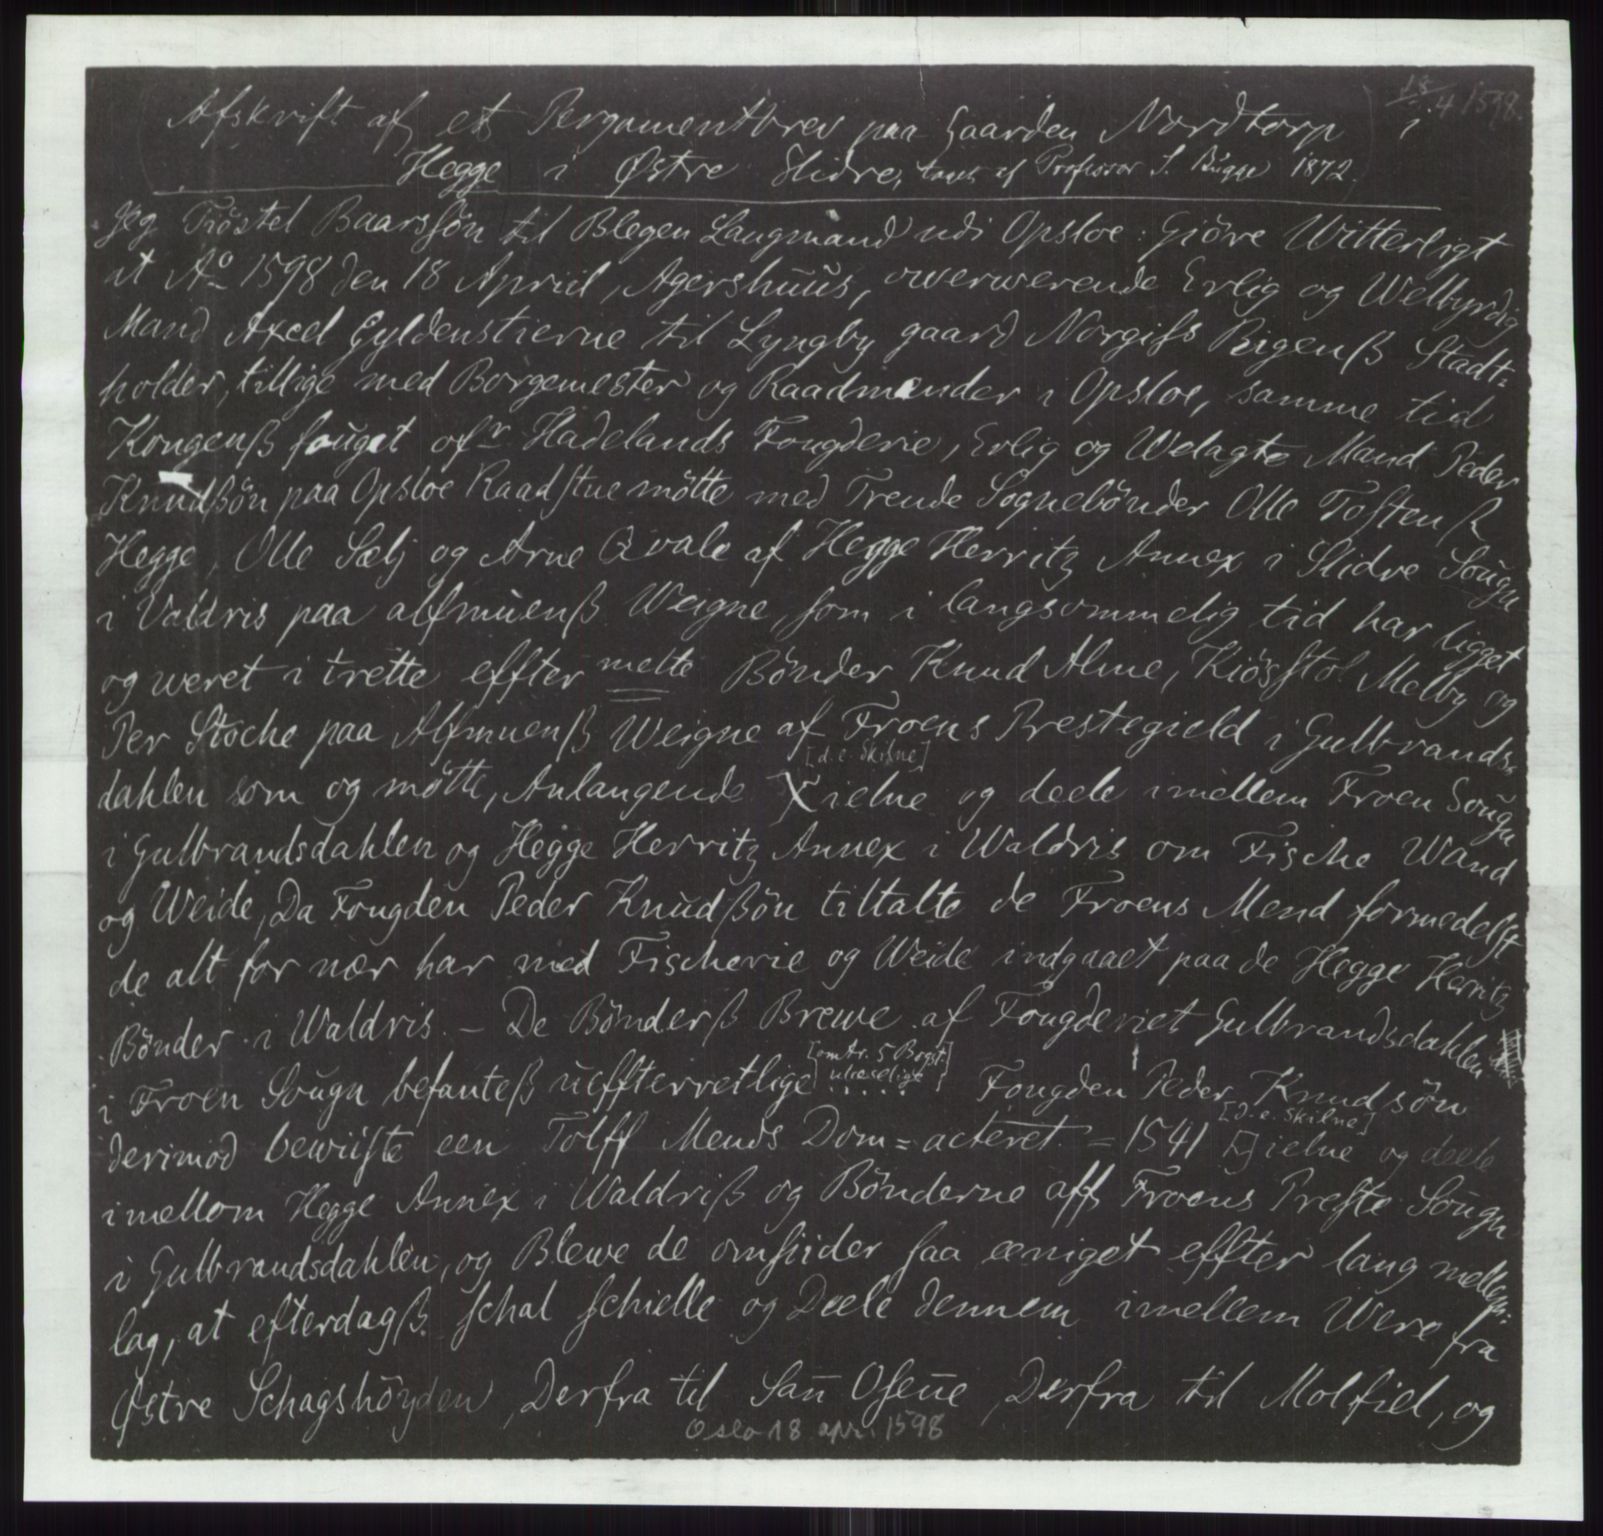 18/4 1598.
Afskrift af et Pergamentbrev paa Gaarden Nordtorp i
Hegge i Østre Slidre, taget af Professor S. Bugge 1872.
Jeg Tröstel Baarssön til Blegen Laugmand udi Opsloe: Giöre Witterligt
at Aº 1598 den 18 Apriil, Agershuus, owerwerende Erlig og Welbyrdig
Mand Axel Gyldenstierne til Lyngby gaard Norgiss Rigenß Stadt=
holder, tillige med Borgemester og Raadmender i Opsloe, samme tid
Kongenß fouget ofr Hadelands Fougderie, Erlig og Welagte Mand Peder
Knudßön paa Opsloe Raadstue mötte med Trende Sognebönder Olle Tostenß
Hegge, Olle Sælj og Arne Qvale af Hegge Herritz Annex i Slidre Sougn
i Valdris paa almuenß Weigne, som i langsommelig tid har ligget
og weret i trette effter melte Bönder Knud Alme, Kiösstol Melby og
Per Stoche paa Almuenß Weigne af Froens Prestegield i Gulbrands=
[d. e. Skilne]
dahlen som og mötte, Anlangende [ielne og deele imellem Froen Sougn
i Gulbrandsdahlen og Hegge Herritz Annex i Waldris om Fische Wand
og Weide, Da Fougden Peder Knudßön tiltalte de Froens Mend formedelst
de alt for nær har med Fischerie og Weide indgaaet paa de Hegge Herritz
Bönder i Waldris. – De Bönderß Brewe af Fougderiet Gulbrandsdahlen
[omtr. 5 Bogst. ulæselige]
i Froen Sougn befanteß ueffterretlige .... Fougden Peder Knudsön
[d. e. Skilne]
derimod bewiiste een Tolff Mends Dom = acteret = 1541 [ ]ielne og deele
imellom Hegge Annex i Waldriß og Bönderne aff Froens Preste Sougn
i Gulbrandsdahlen, og Blewe de omsiider saa eeniget effter lang mellem=
lag, at efterdagß schal schielle og Deele dennem imellem Were fra
Østre Schagshöyden, Derfra til San Osene, Derfra til Molfiel, og
Oslo 18 apr. 1598